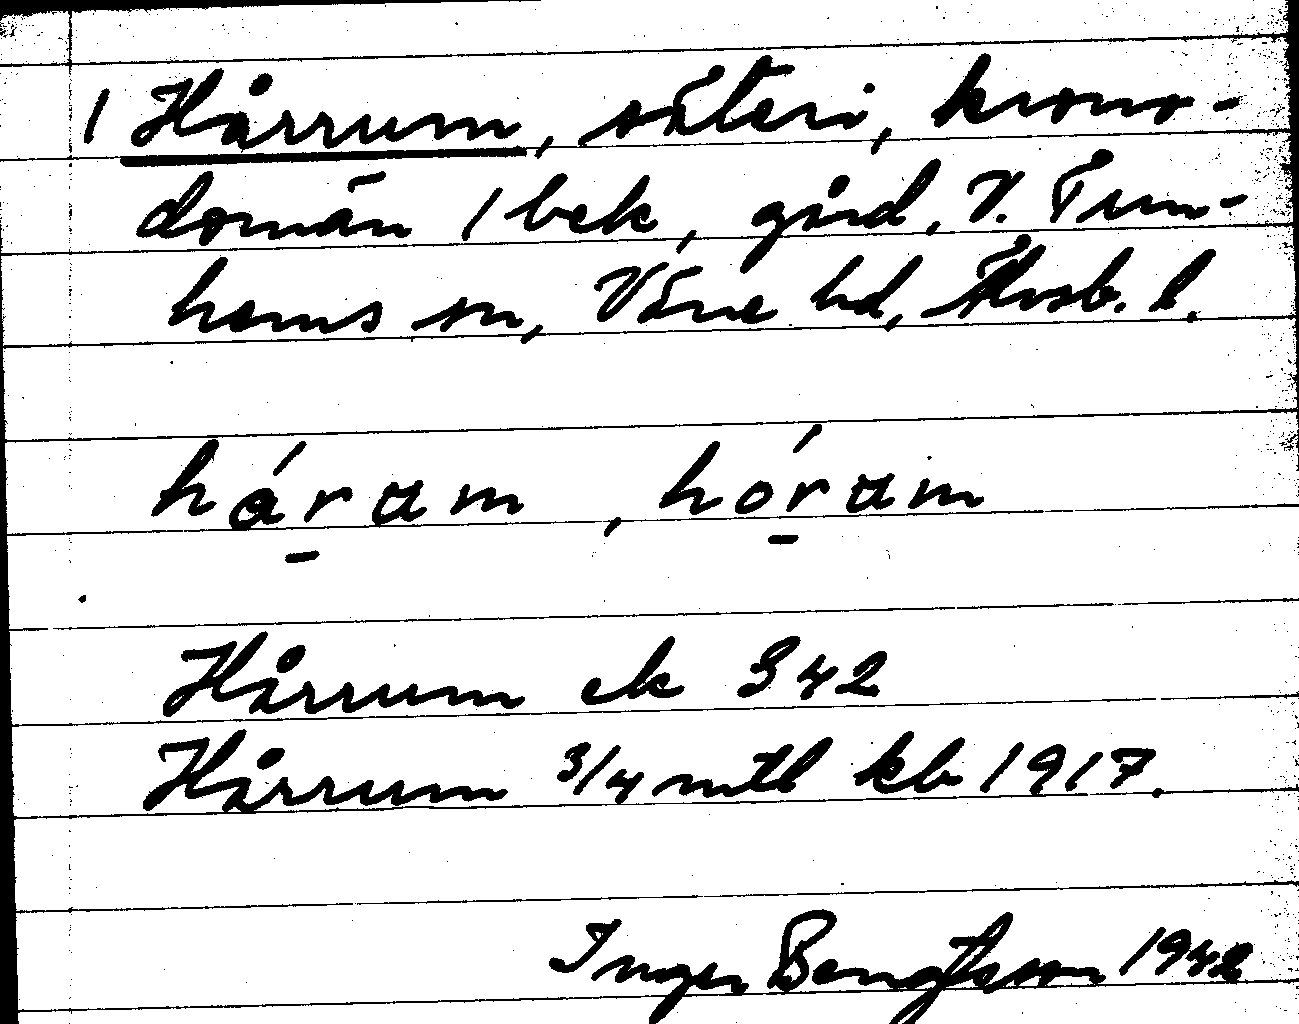 1 Hårrum, säteri, krono-
domän 1 bek, gård, V. Tun-
hems sn, Väne hd, Älvsb. l.
hárum, hórum
Hårrum ek 342
Hårrum 3/4 mtl kb 1917.
Inger Bengtsson 1942